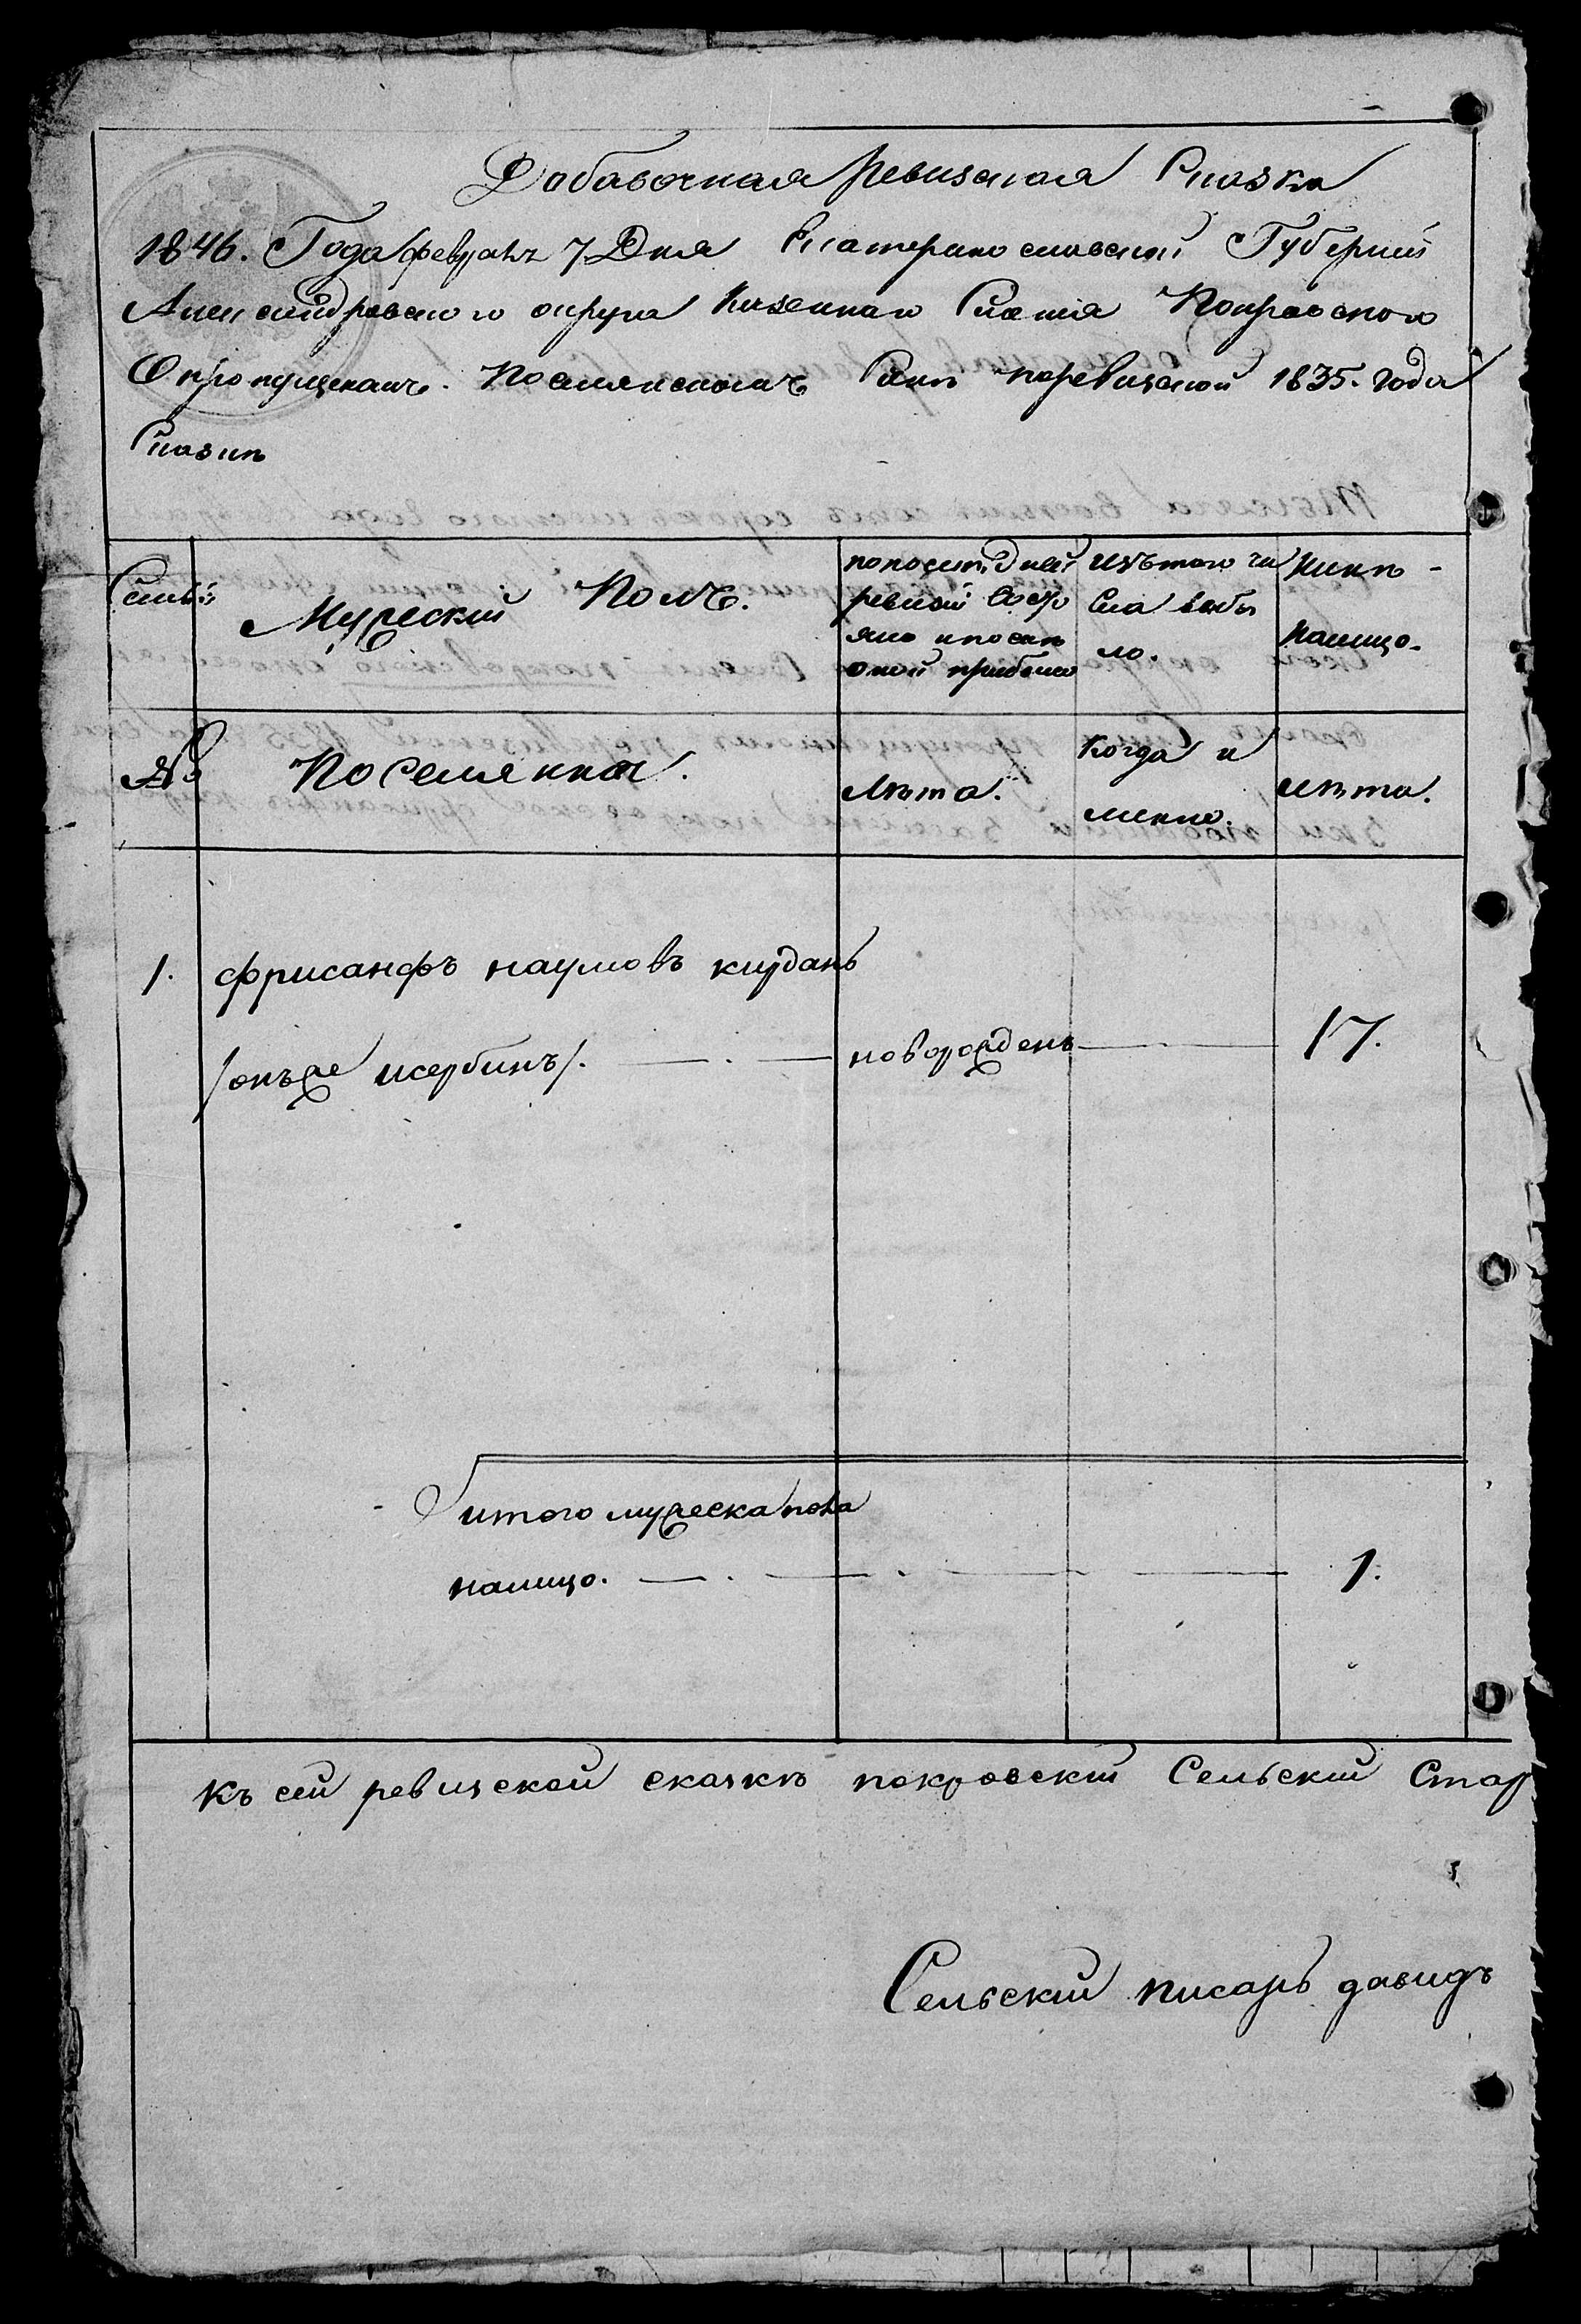 Добавочная ревизская Сказка
1846. Года февраля 7 Дня Екатеринославской Губернии
Александровского округа Казеннаго Селения Покровского
О пропущенномъ Поселянскомъ Сынѣ поревизской 1835. года
Сказкѣ
Семьи
Мужеский Полъ.
попоследней
ревизии состо
яло и после
оной прибыло
Изъ того чи
сла выбы
ло.
Нынѣ
налицо.
№
Поселяннѣ.
Лѣта.
Когда и
менно.
Лѣта.
1. фрисанфъ наумовъ курдань
/онъже щербинъ/. новорожденъ 17.
итого мужеска пола
налицо. 1.
Къ сей ревизской сказкѣ покровский Сельский Стар
Сельский писарь давидъ